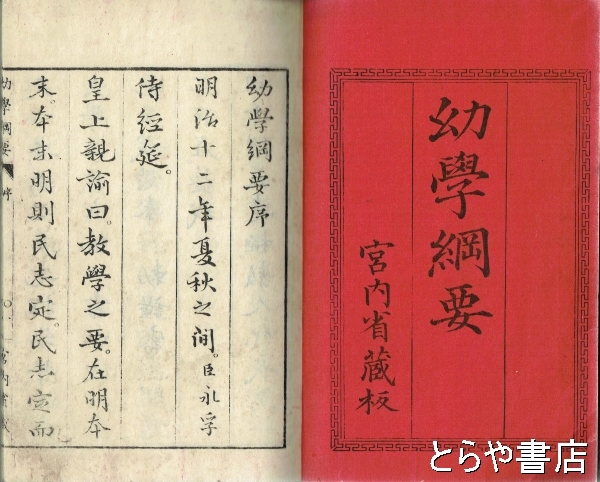 幼學綱要
宮內省藏板
幼學綱要序
明治十二年夏秋之間。臣永孚
侍經筵。
皇上親諭曰。教學之要。在明本
末。本末明則民志定。民志定而
幼學綱要 序 宮內省藏
とらや書店